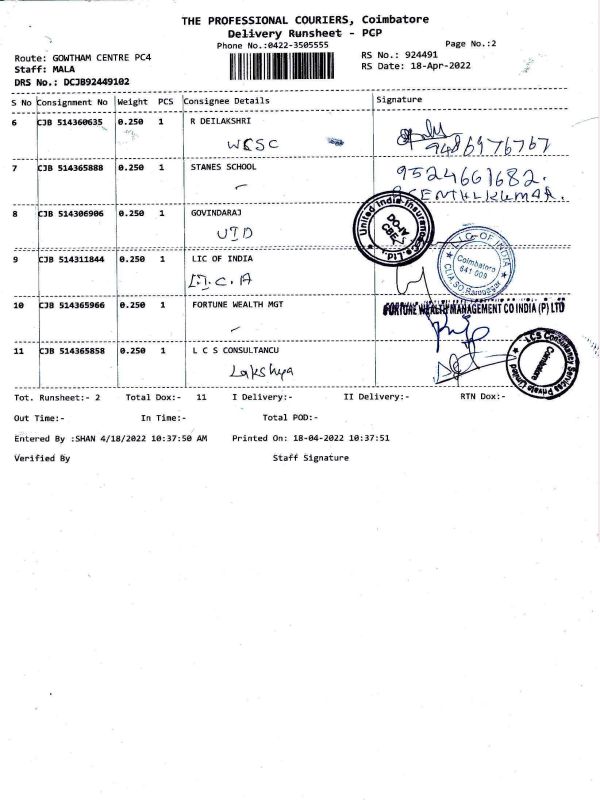 THE PROFESSIONAL COURIERS, Coimbatore
Delivery Runsheet - PCP
Phone No.:0422-3505555
Page No.:2
Route: GOWTHAM CENTRE PC4
RS No.: 924491
Staff: MALA
RS Date: 18-Apr-2022
DRS No.: DCJB92449102
S No Consignment No Weight PCS Consignee Details Signature
6 CJB 514360635 0.250 1 R DEILAKSHRI
WCSC 9486976767
7 CJB 514365888 0.250 1 STANES SCHOOL
9524661682.
SENTHILKUMAR.
8 CJB 514306906 0.250 1 GOVINDARAJ
UID
United India Insurance Co. Ltd.
DO-IV
CBE
9 CJB 514311844 0.250 1 LIC OF INDIA
L.I.C OF INDIA
Coimbatore
641 009
10 CJB 514365966 0.250 1 FORTUNE WEALTH MGT
FORTUNE WEALTH MANAGEMENT CO INDIA (P) LTD
11 CJB 514365858 0.250 1 L C S CONSULTANCU
Lakshya
LCS Consultancy Services Private Limited
Coimbatore
Tot. Runsheet:- 2 Total Dox:- 11 I Delivery:- II Delivery:- RTN Dox:-
Out Time:- In Time:- Total POD:-
Entered By :SHAN 4/18/2022 10:37:50 AM Printed On: 18-04-2022 10:37:51
Verified By Staff Signature